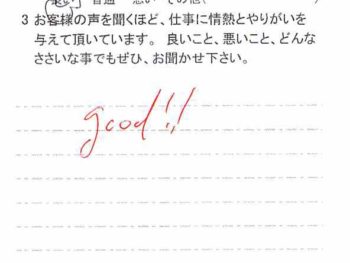 良い 普通 悪い その他( )
3 お客様の声を聞くほど、仕事に情熱とやりがいを
与えて頂いています。 良いこと、悪いこと、どんな
ささいな事でもぜひ、お聞かせ下さい。
good!!